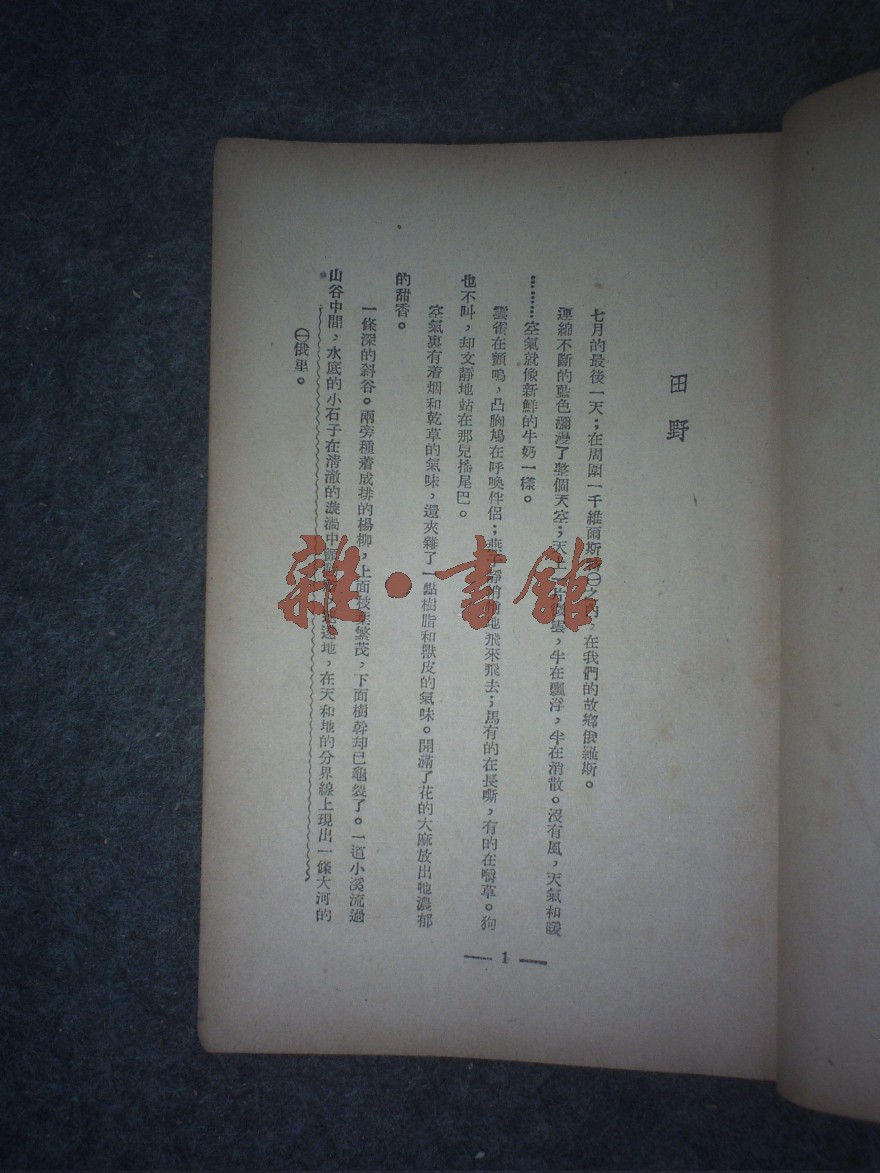 田野
七月的最後一天；在周圍一千維爾斯特㊀之內，在我們的故鄉俄羅斯。
連綿不斷的藍色瀰漫了整個天空；天上一片微雲，半在飄浮，半在消散。沒有風，天氣和暖
………空氣就像新鮮的牛奶一樣。
雲雀在顫鳴，凸胸鳩在呼喚伴侶；燕子靜悄悄地飛來飛去；馬有的在長嘶，有的在嚼草。狗
也不叫，却文靜地站在那兒搖尾巴。
空氣裏有着烟和乾草的氣味，還夾雜了一點樹脂和獸皮的氣味。開滿了花的大麻放出牠濃郁
的甜香。
一條深的斜谷。兩旁種着成排的楊柳，上面枝葉繁茂，下面樹幹却已龜裂了。一道小溪流過
山谷中間，水底的小石子在清澈的漩渦中顫動。遠遠地，在天和地的分界線上現出一條大河的
㊀俄里。
— 1 —
雜·書館